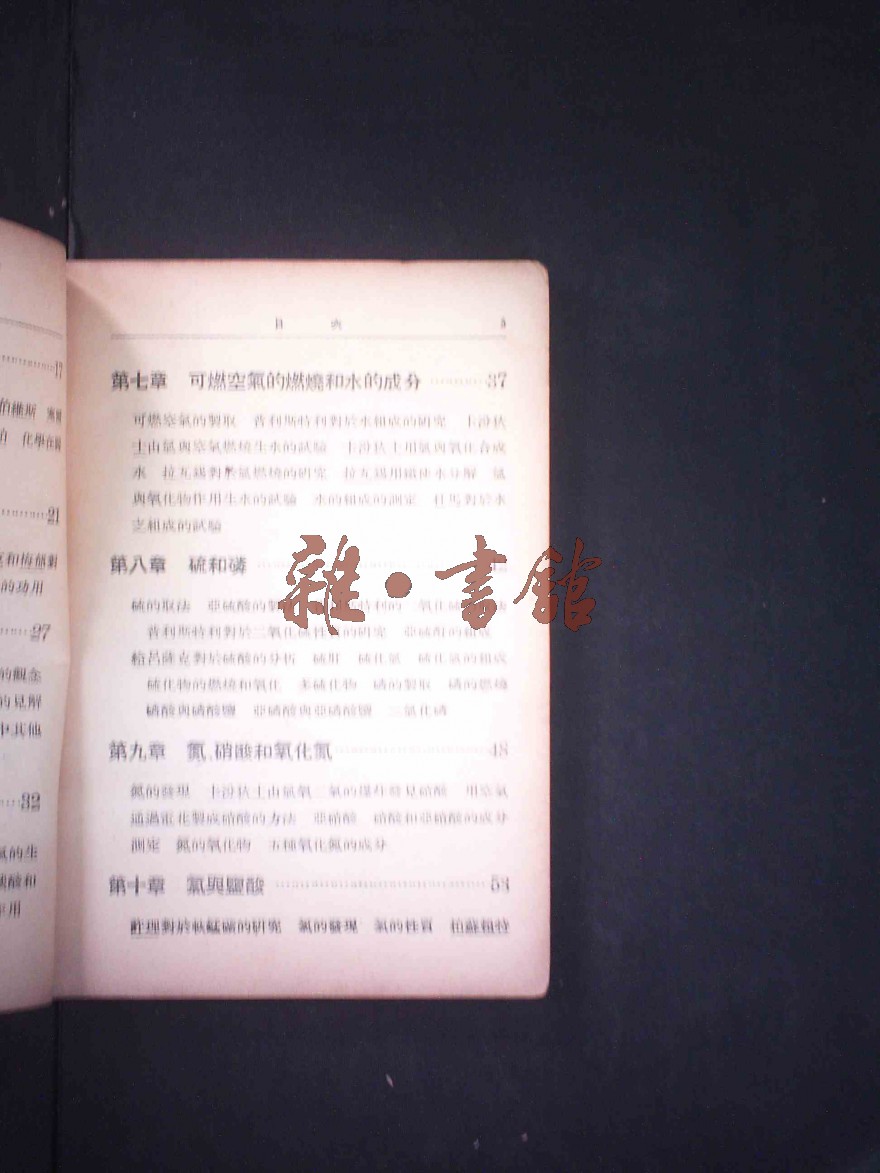 17
伯維斯
化學在
21
和梅郁對
的功用
27
的觀念
的見解
中其他
32
氣的生
酸和
作用
目 次 5
第七章 可燃空氣的燃燒和水的成分 37
可燃空氣的製取 普利斯特利對於水組成的研究 卡汾狄
士由氫與空氣燃燒生水的試驗 卡汾狄士用氫與氧化合成
水 拉瓦錫對於氫燃燒的研究 拉瓦錫用鐵使水分解 氫
與氧化物作用生水的試驗 水的組成的測定 杜馬對於水
之組成的試驗
第八章 硫和磷
硫的取法 亞硫酸的製 特利的二氧化硫
普利斯特利對於二氧化硫性質的研究 亞硫酐的組成
給呂薩克對於硫酸的分析 硫酐 硫化氫 硫化氫的組成
硫化物的燃燒和氧化 多硫化物 磷的製取 磷的燃燒
磷酸與磷酸鹽 亞磷酸與亞磷酸鹽 三氯化磷
第九章 氮,硝酸和氧化氮 48
氮的發現 卡汾狄士由氫氧二氣的爆炸發見硝酸 用空氣
通過電花製成硝酸的方法 亞硝酸 硝酸和亞硝酸的成分
測定 氮的氧化物 五種氧化氮的成分
第十章 氯與鹽酸 53
許理對於軟錳礦的研究 氯的發現 氯的性質 柏蘇賴特
雜·書館